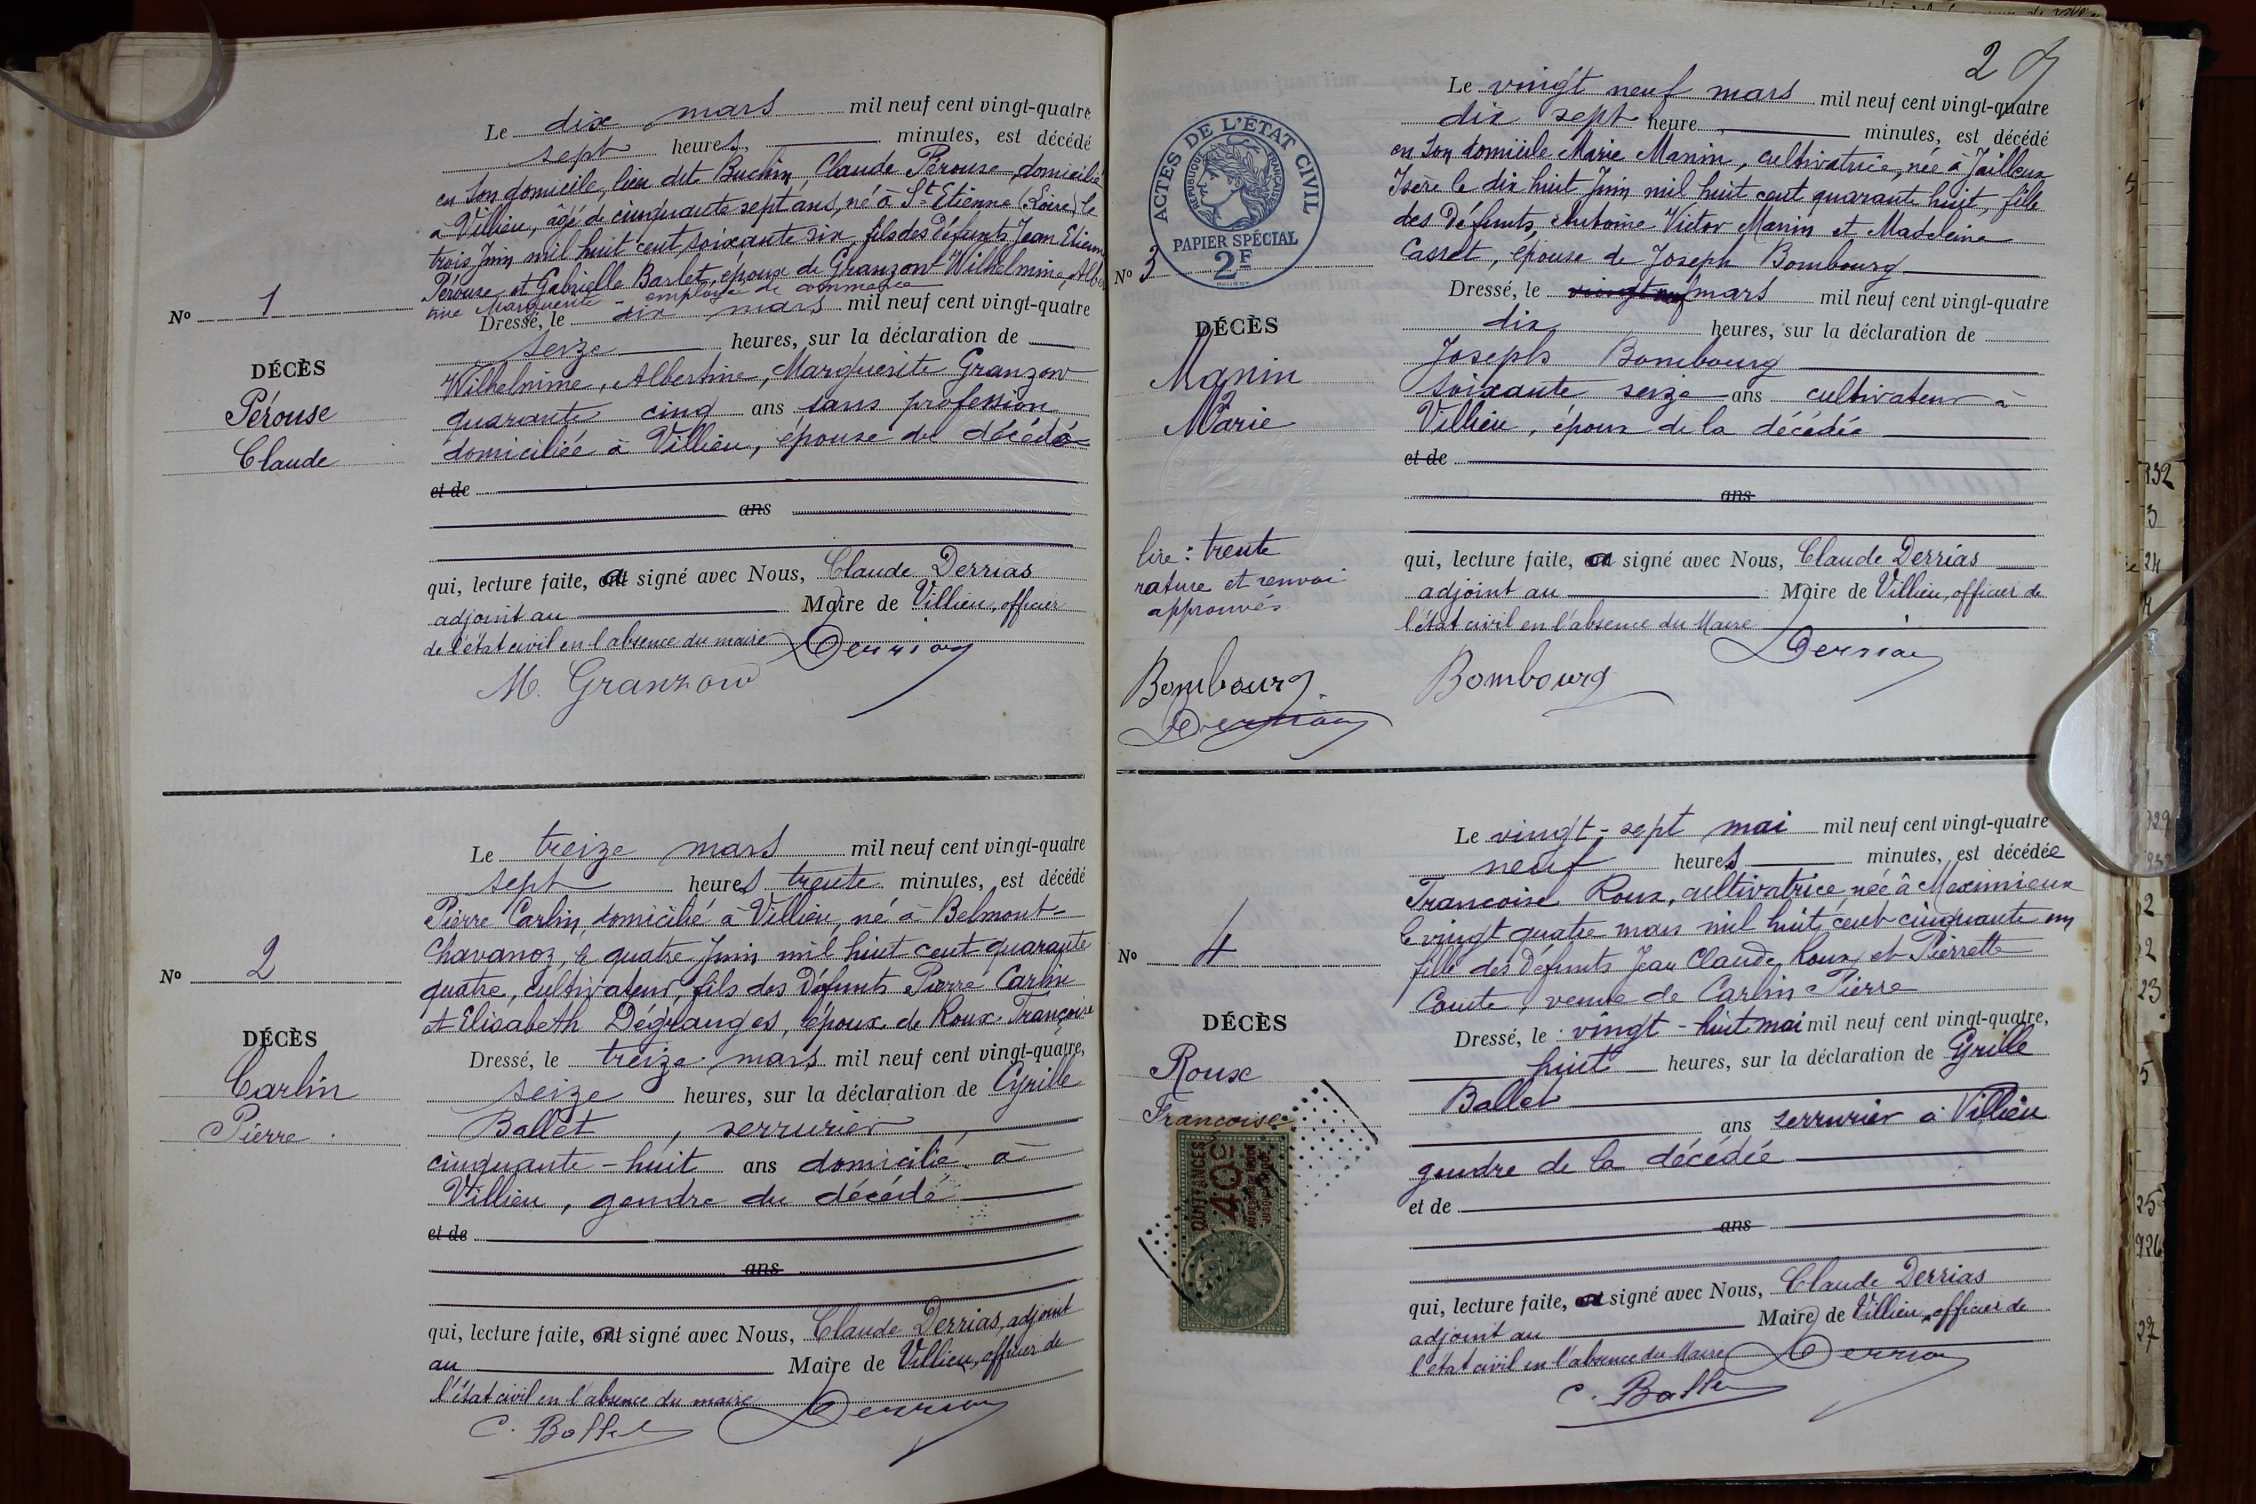 Le dix mars mil neuf cent vingt-quatre
sept heures, minutes, est décédé
en son domicile, lieu dit Buchin Claude Pérouse domicilié
à Villieu, âgé de cinquante sept ans, né à St Etienne (Loire) le
trois Juin mil huit cent soixante six, fils des défunts Jean Etienne
Pérouse et Gabrielle Barlet, époux de Granzow Wilhelmine, Alber
tine Marguerite - employée de commerce
No 1
Dressé, le dix mars mil neuf cent vingt-quatre
seize heures, sur la déclaration de
DÉCÈS
Wilhelmine, Albertine, Marguerite Granzow
Pérouse
quarante cinq ans sans profession
Claude
domiciliée à Villieu, épouse du décédé
et de
ans
qui, lecture faite, a signé avec Nous, Claude Derrias
adjoint au Maire de Villieu, officier
de l'état civil en l'absence du maire Derrias
M. Granzow
Le treize mars mil neuf cent vingt-quatre
sept heures trente minutes, est décédé
Pierre Carlin, domicilié à Villieu, né à Belmont-
Chavanoz, le quatre Juin mil huit cent quarante
No 2
quatre, cultivateur, fils des défunts Pierre Carlin
et Elisabeth Dégranges, époux de Roux Françoise
DÉCÈS
Dressé, le treize mars mil neuf cent vingt-quatre,
Carlin
seize heures, sur la déclaration de Cyrille
Pierre
Ballet, serrurier
cinquante-huit ans domicilié à
Villieu, gendre du décédé
et de
ans
qui, lecture faite, a signé avec Nous, Claude Derrias, adjoint
au Maire de Villieu, officier de
l'état civil en l'absence du maire Derrias
C. Ballet
2
Le vingt neuf mars mil neuf cent vingt-quatre
dix sept heure, minutes, est décédé
en son domicile Marie Manin, cultivatrice, née à Jailleux
Isère le dix huit Juin mil huit cent quarante huit, fille
des Défunts Antoine Victor Manin et Madeleine
Casset, épouse de Joseph Bombourg
ACTES DE L'ÉTAT CIVIL
RÉPUBLIQUE FRANÇAISE
PAPIER SPÉCIAL
2F
No 3
Dressé, le vingt neuf mars mil neuf cent vingt-quatre
DÉCÈS
dix heures, sur la déclaration de
Manin
Joseph Bombourg
Marie
soixante seize ans cultivateur à
Villieu, époux de la décédée
et de
ans
lire : trente
rature et renvoi
approuvés
Bombourg
Derrias
qui, lecture faite, a signé avec Nous, Claude Derrias
adjoint au Maire de Villieu, officier de
l'état civil en l'absence du Maire
Derrias
Bombourg
Le vingt-sept mai mil neuf cent vingt-quatre
neuf heures minutes, est décédée
Francoise Roux, cultivatrice née à Meximieux
le vingt quatre mars mil huit cent cinquante un
fille des Défunts Jean Claude Roux et Pierrette
No 4
Comte, veuve de Carlin Pierre
DÉCÈS
Dressé, le vingt-huit mai mil neuf cent vingt-quatre,
Roux
huit heures, sur la déclaration de Cyrille
Francoise
Ballet
ans serrurier à Villieu
gendre de la décédée
et de
ans
QUITTANCES
40c
qui, lecture faite, a signé avec Nous, Claude Derrias
adjoint au Maire de Villieu, officier de
l'état civil en l'absence du Maire Derrias
C. Ballet